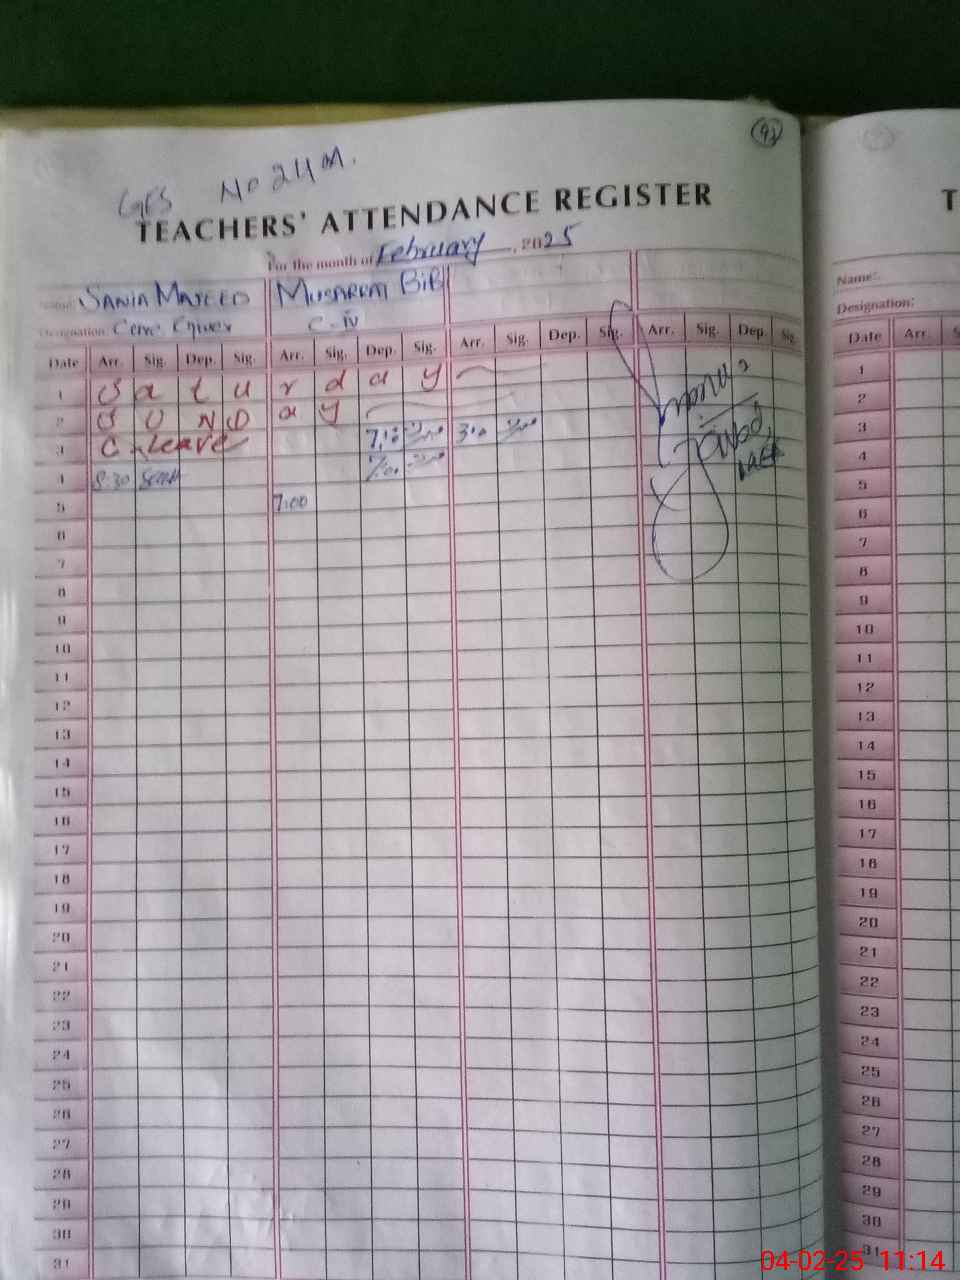 92
GFS No 24 M.
TEACHERS' ATTENDANCE REGISTER
T
For the month of February, 2025
Name: SANIA MAJEED MUSARRAT BiBi
Name:
Designation: C-iv
Designation:
Date Arr. Sig. Dep. Sig. Arr. Sig. Dep. Sig. Arr. Sig. Dep. Sig. Arr. Sig. Dep. Sig.
Date Arr. S
1 S a t u r d a y
2 S U N D a y
3 C. Leave 3:00
4 8:30 7:00
5 7:00
6
7
8
9
10
11
12
13
14
15
16
17
18
19
20
21
22
23
24
25
26
27
28
29
30
31
1
2
3
4
5
6
7
8
9
10
11
12
13
14
15
16
17
18
19
20
21
22
23
24
25
26
27
28
29
30
31
04-02-25 11:14